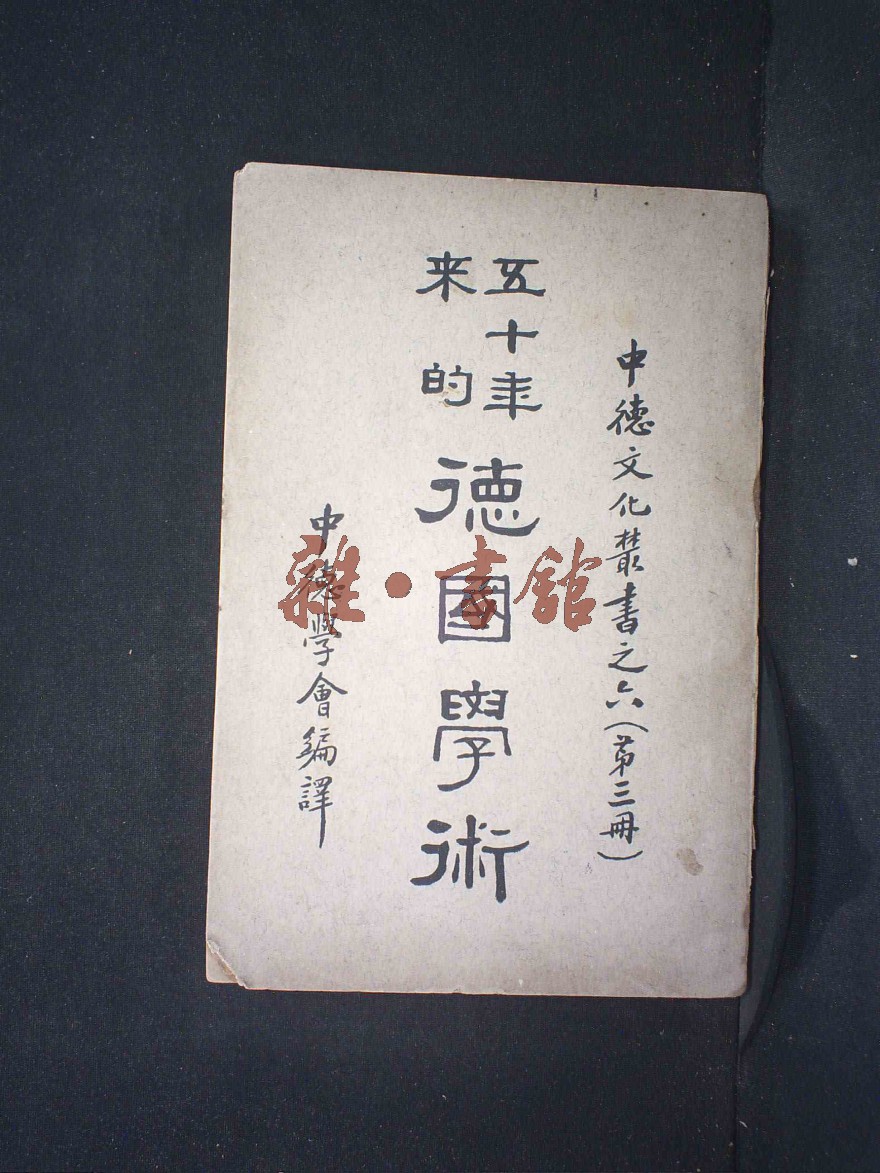 中德文化叢書之六（第三冊）
五十年来的
德國學術
中德學會編譯
雜·書館